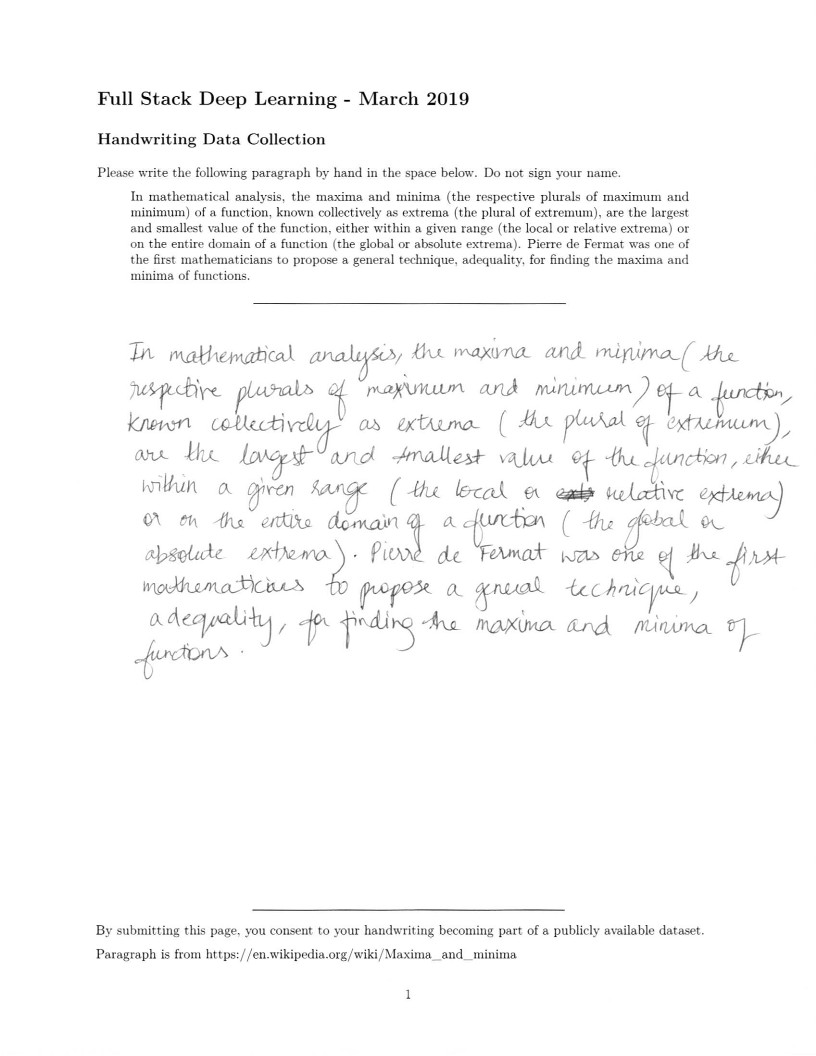 Full Stack Deep Learning - March 2019
Handwriting Data Collection
Please write the following paragraph by hand in the space below. Do not sign your name.
In mathematical analysis, the maxima and minima (the respective plurals of maximum and
minimum) of a function, known collectively as extrema (the plural of extremum), are the largest
and smallest value of the function, either within a given range (the local or relative extrema) or
on the entire domain of a function (the global or absolute extrema). Pierre de Fermat was one of
the first mathematicians to propose a general technique, adequality, for finding the maxima and
minima of functions.
In mathematical analysis, the maxima and minima (the
respective plurals of maximum and minimum) of a function,
known collectively as extrema (the plural of extremum),
are the largest and smallest value of the function, either
within a given range (the local or relative extrema)
or on the entire domain of a function (the global or
absolute extrema). Pierre de Fermat was one of the first
mathematicians to propose a general technique,
adequality, for finding the maxima and minima of
functions.
By submitting this page, you consent to your handwriting becoming part of a publicly available dataset.
Paragraph is from https://en.wikipedia.org/wiki/Maxima_and_minima
1